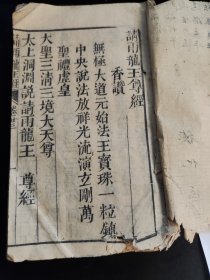 請雨龍王尊經
香讚
無極大道元始法王寶珠一粒鎮
中央說法放祥光流演玄剛萬
聖禮虛皇
大聖三清三境大天尊
太上洞淵説請雨龍王 尊經